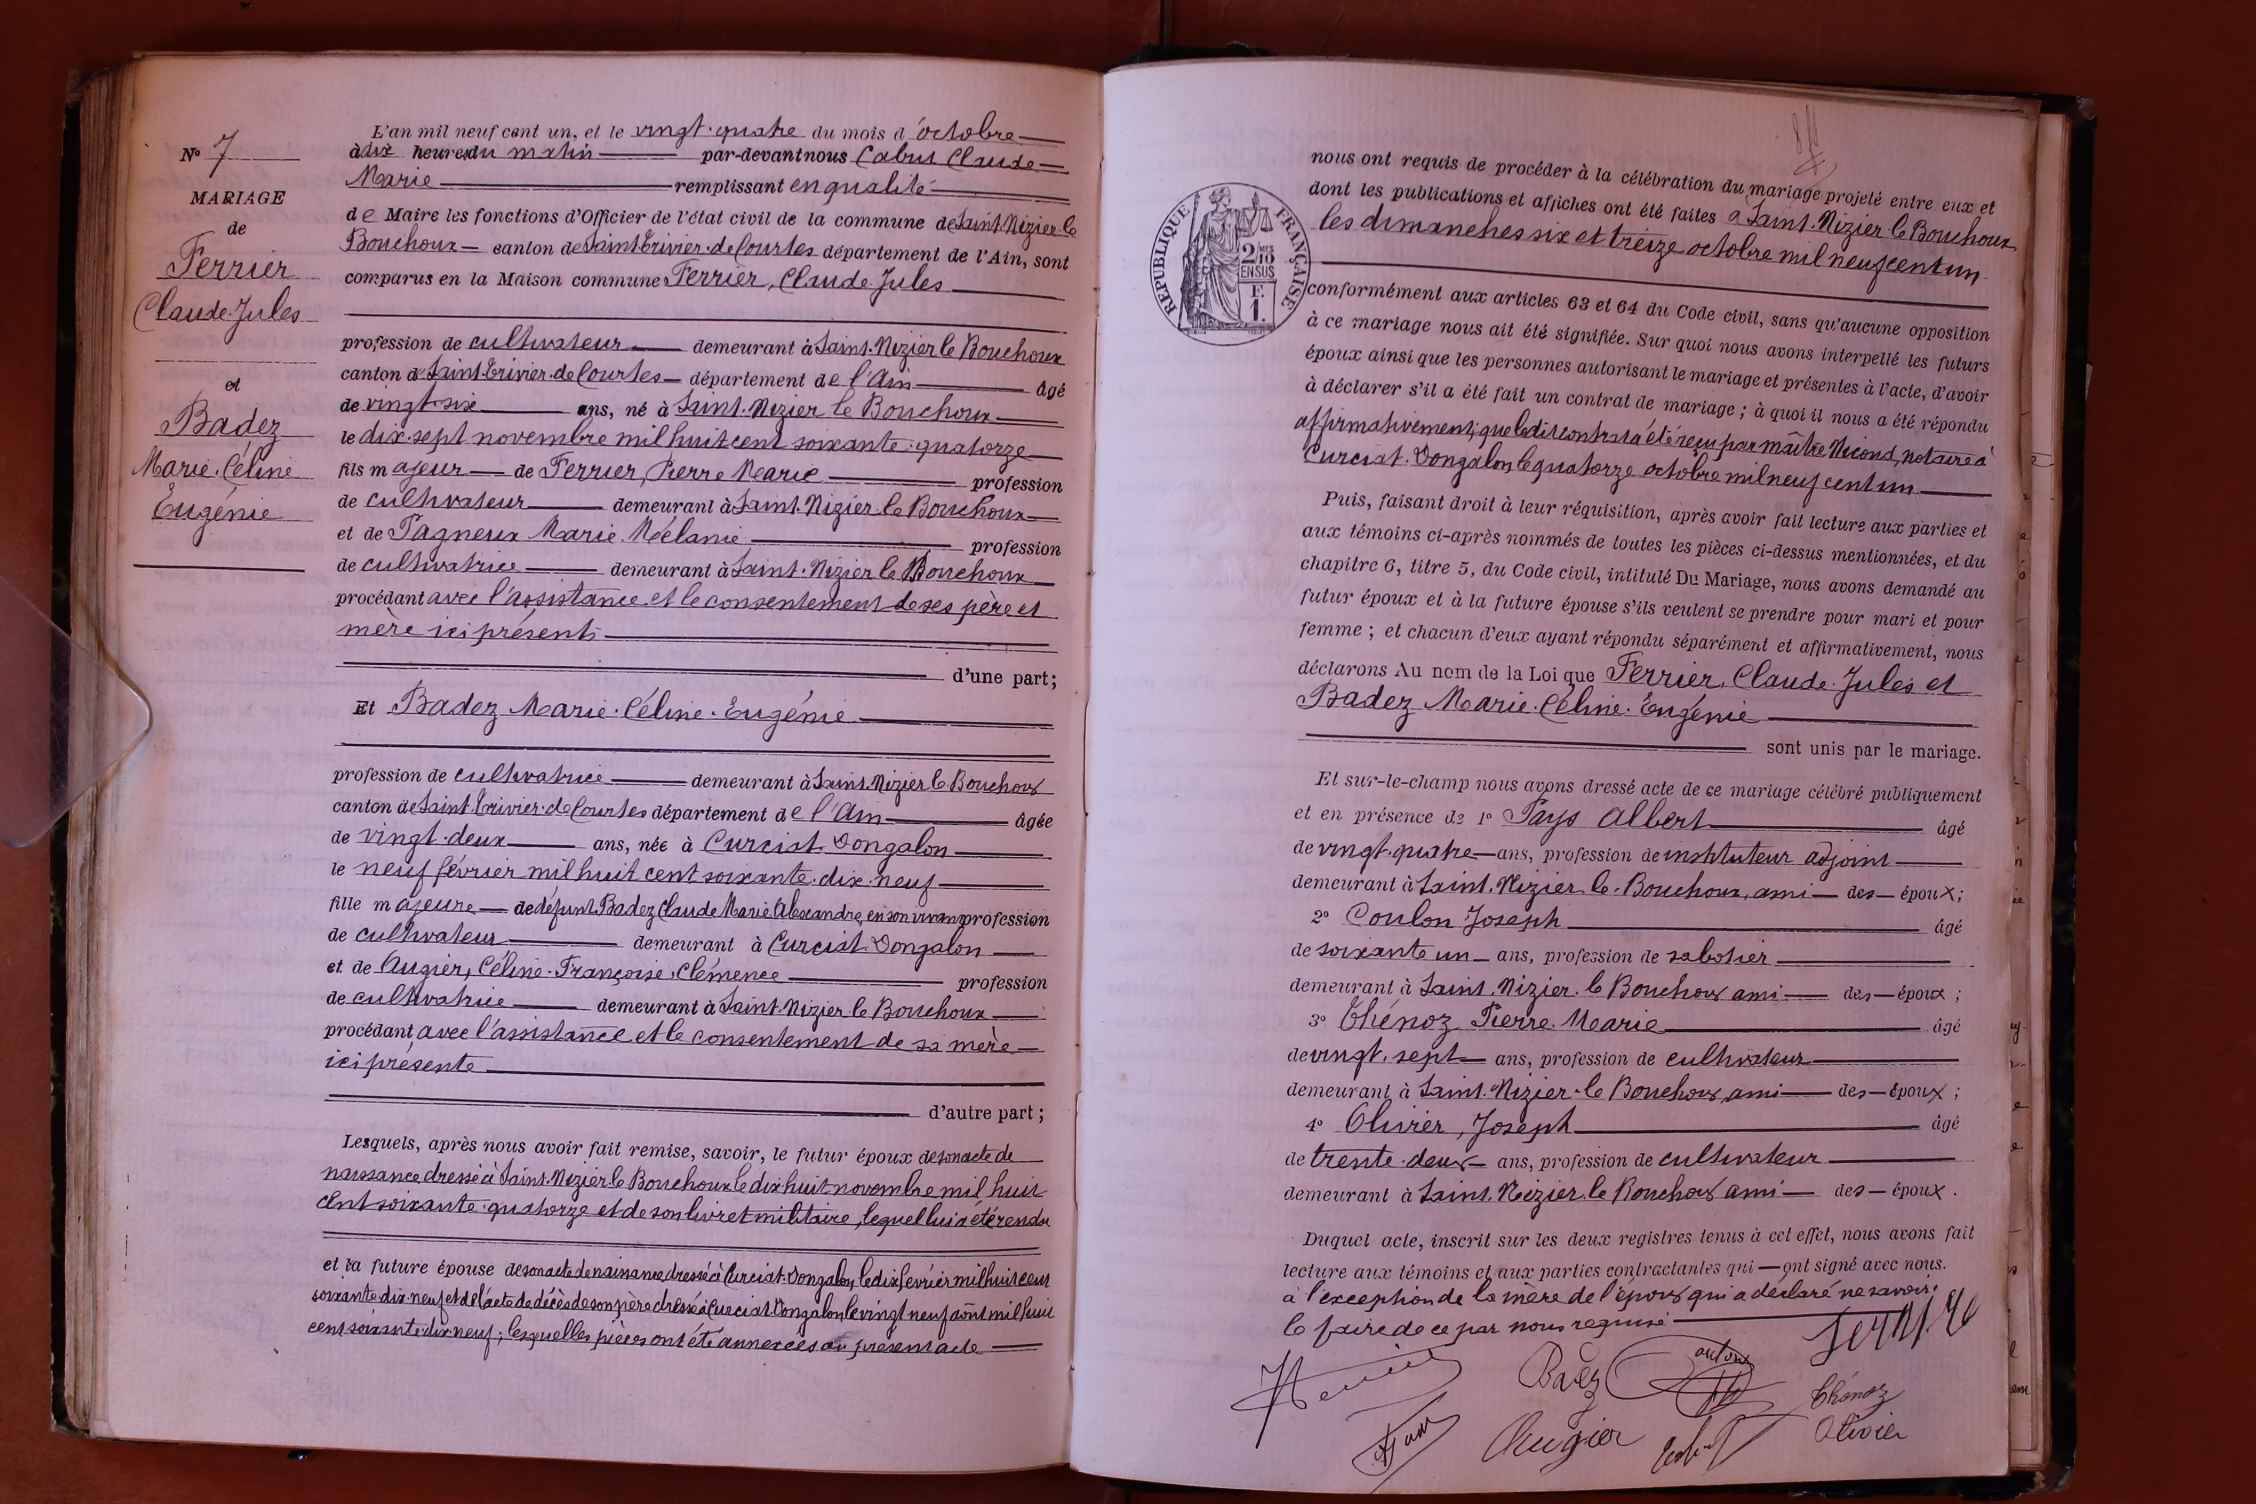 N° 7
MARIAGE
de
Ferrier
Claude Jules
et
Badez
Marie Céline
Eugénie
L'an mil neuf cent un, et le vingt-quatre du mois d'octobre
à dix heures du matin par-devant nous Cabut Claude
Marie remplissant en qualité
de Maire les fonctions d'Officier de l'état civil de la commune de Saint-Nizier-le
Bouchoux canton de Saint-Trivier-de-Courtes département de l'Ain, sont
comparus en la Maison commune Ferrier, Claude Jules
profession de cultivateur demeurant à Saint-Nizier le Bouchoux
canton de Saint-Trivier-de-Courtes département de l'Ain âgé
de vingt-six ans, né à Saint-Nizier le Bouchoux
le dix-sept novembre mil huit cent soixante-quatorze
fils majeur de Ferrier, Pierre Marie profession
de cultivateur demeurant à Saint-Nizier-le Bouchoux
et de Pagneux Marie Mélanie profession
de cultivatrice demeurant à Saint-Nizier le Bouchoux
procédant avec l'assistance et le consentement de ses père et
mère ici présents
d'une part;
Et Badez Marie-Céline-Eugénie
profession de cultivatrice demeurant à Saint-Nizier le Bouchoux
canton de Saint-Trivier-de-Courtes département de l'Ain âgée
de vingt-deux ans, née à Curciat-Dongalon
le neuf février mil huit cent soixante-dix-neuf
fille majeure de défunt Badez Claude Marie Alexandre, en son vivant profession
de cultivateur demeurant à Curciat-Dongalon
et de Augier, Céline-Françoise-Clémence profession
de cultivatrice demeurant à Saint-Nizier le Bouchoux
procédant avec l'assistance et le consentement de sa mère
ici présente
d'autre part;
Lesquels, après nous avoir fait remise, savoir, le futur époux de son acte de
naissance dressé à Saint-Nizier le Bouchoux le dix huit novembre mil huit
cent soixante-quatorze et de son livret militaire, lequel lui a été rendu
et la future épouse de son acte de naissance dressé à Curciat-Dongalon, le dix février mil huit cent
soixante-dix-neuf et de l'acte de décès de son père dressé à Curciat-Dongalon, le vingt neuf août mil huit
cent soixante-dix-neuf; lesquelles pièces ont été annexées au présent acte
RÉPUBLIQUE FRANÇAISE
2/10
EN SUS
F.
1.
nous ont requis de procéder à la célébration du mariage projeté entre eux et
dont les publications et affiches ont été faites à Saint-Nizier le Bouchoux
les dimanches six et treize octobre mil neuf cent un
conformément aux articles 63 et 64 du Code civil, sans qu'aucune opposition
à ce mariage nous ait été signifiée. Sur quoi nous avons interpellé les futurs
époux ainsi que les personnes autorisant le mariage et présentes à l'acte, d'avoir
à déclarer s'il a été fait un contrat de mariage; à quoi il nous a été répondu
affirmativement; que ledit contrat a été reçu par maître Nicond, notaire à
Curciat-Dongalon le quatorze octobre mil neuf cent un
Puis, faisant droit à leur réquisition, après avoir fait lecture aux parties et
aux témoins ci-après nommés de toutes les pièces ci-dessus mentionnées, et du
chapitre 6, titre 5, du Code civil, intitulé Du Mariage, nous avons demandé au
futur époux et à la future épouse s'ils veulent se prendre pour mari et pour
femme; et chacun d'eux ayant répondu séparément et affirmativement, nous
déclarons Au nom de la Loi que Ferrier, Claude Jules et
Badez Marie-Céline-Eugénie
sont unis par le mariage.
Et sur-le-champ nous avons dressé acte de ce mariage célébré publiquement
et en présence de 1° Pays Albert âgé
de vingt-quatre ans, profession de instituteur adjoint
demeurant à Saint-Nizier-le-Bouchoux, ami des époux;
2° Coulon Joseph âgé
de soixante un ans, profession de sabotier
demeurant à Saint-Nizier-le Bouchoux ami des époux;
3° Thénoz Pierre-Marie âgé
de vingt-sept ans, profession de cultivateur
demeurant à Saint-Nizier-le Bouchoux ami des époux;
4° Olivier, Joseph âgé
de trente-deux ans, profession de cultivateur
demeurant à Saint-Nizier le Bouchoux ami des époux.
Duquel acte, inscrit sur les deux registres tenus à cet effet, nous avons fait
lecture aux témoins et aux parties contractantes qui ont signé avec nous.
à l'exception de la mère de l'époux qui a déclaré ne savoir
le faire de ce par nous requise
Badez
Thénoz
Augier
Olivier